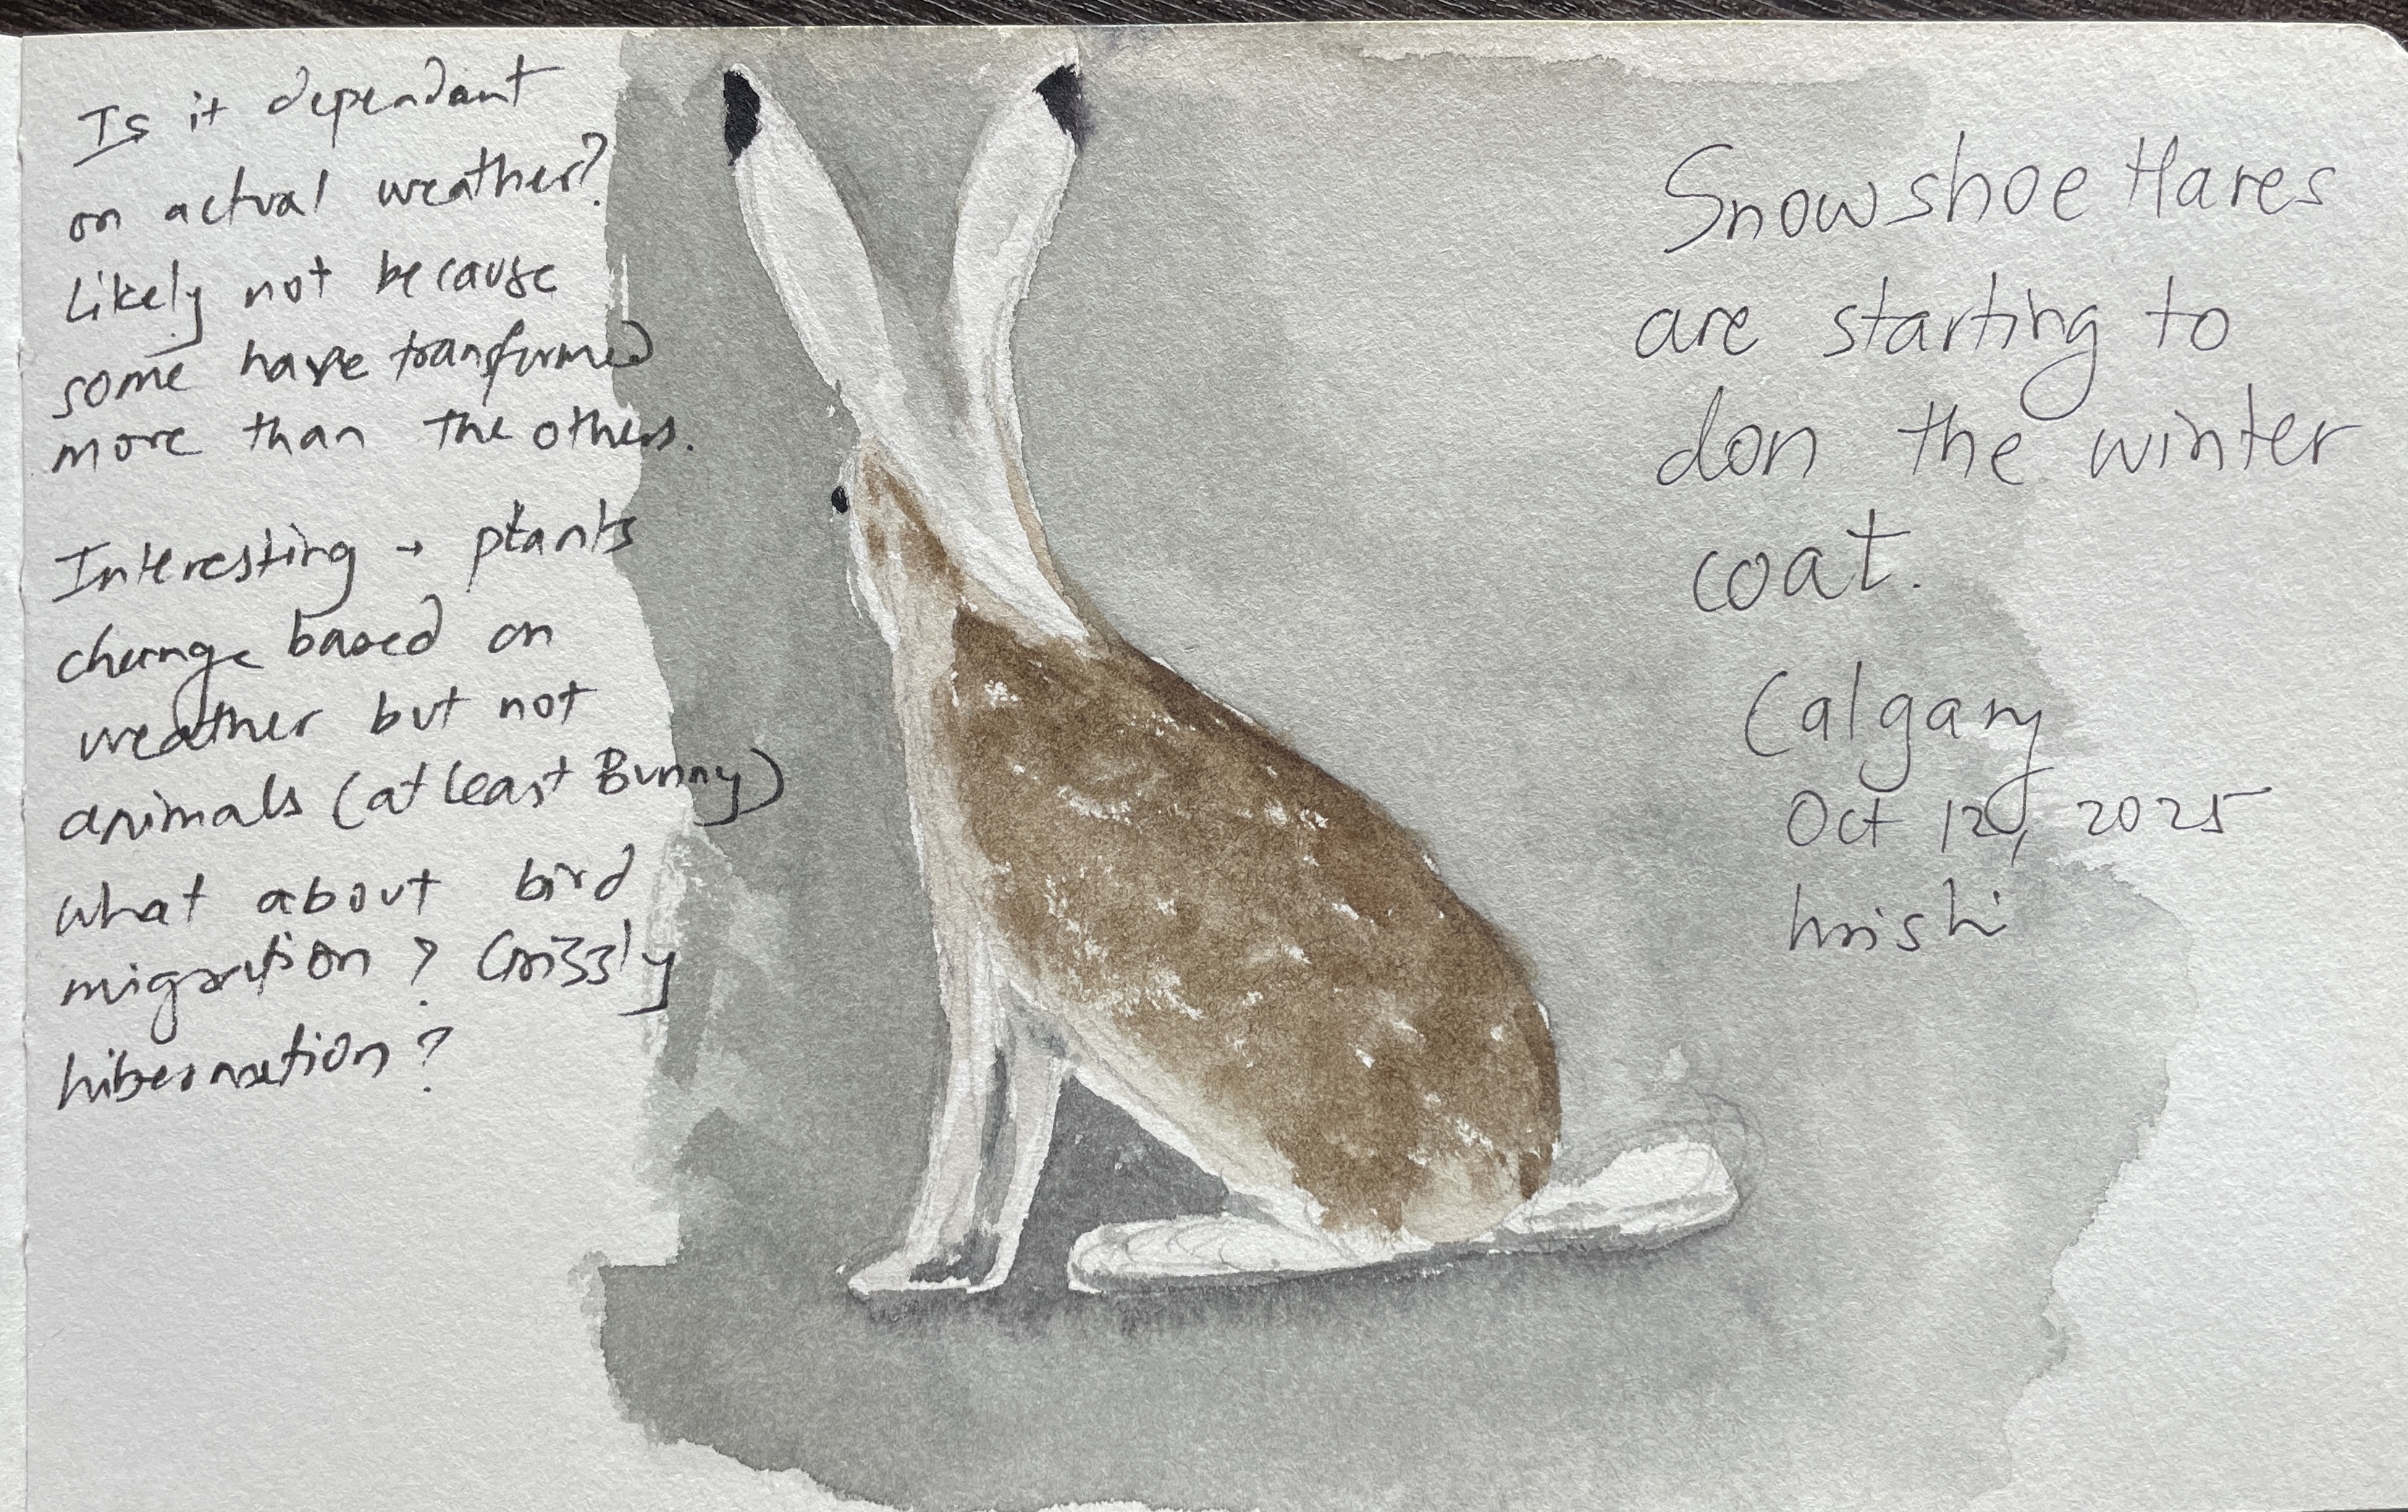 Is it dependant
on actual weather?
Likely not because
some have transformed
more than the others.
Interesting → plants
change based on
weather but not
animals (at least Bunny)
what about bird
migration? Grizzly
hibernation?
Snowshoe Hares
are starting to
don the winter
coat.
Calgary
Oct 12, 2025
hrishi